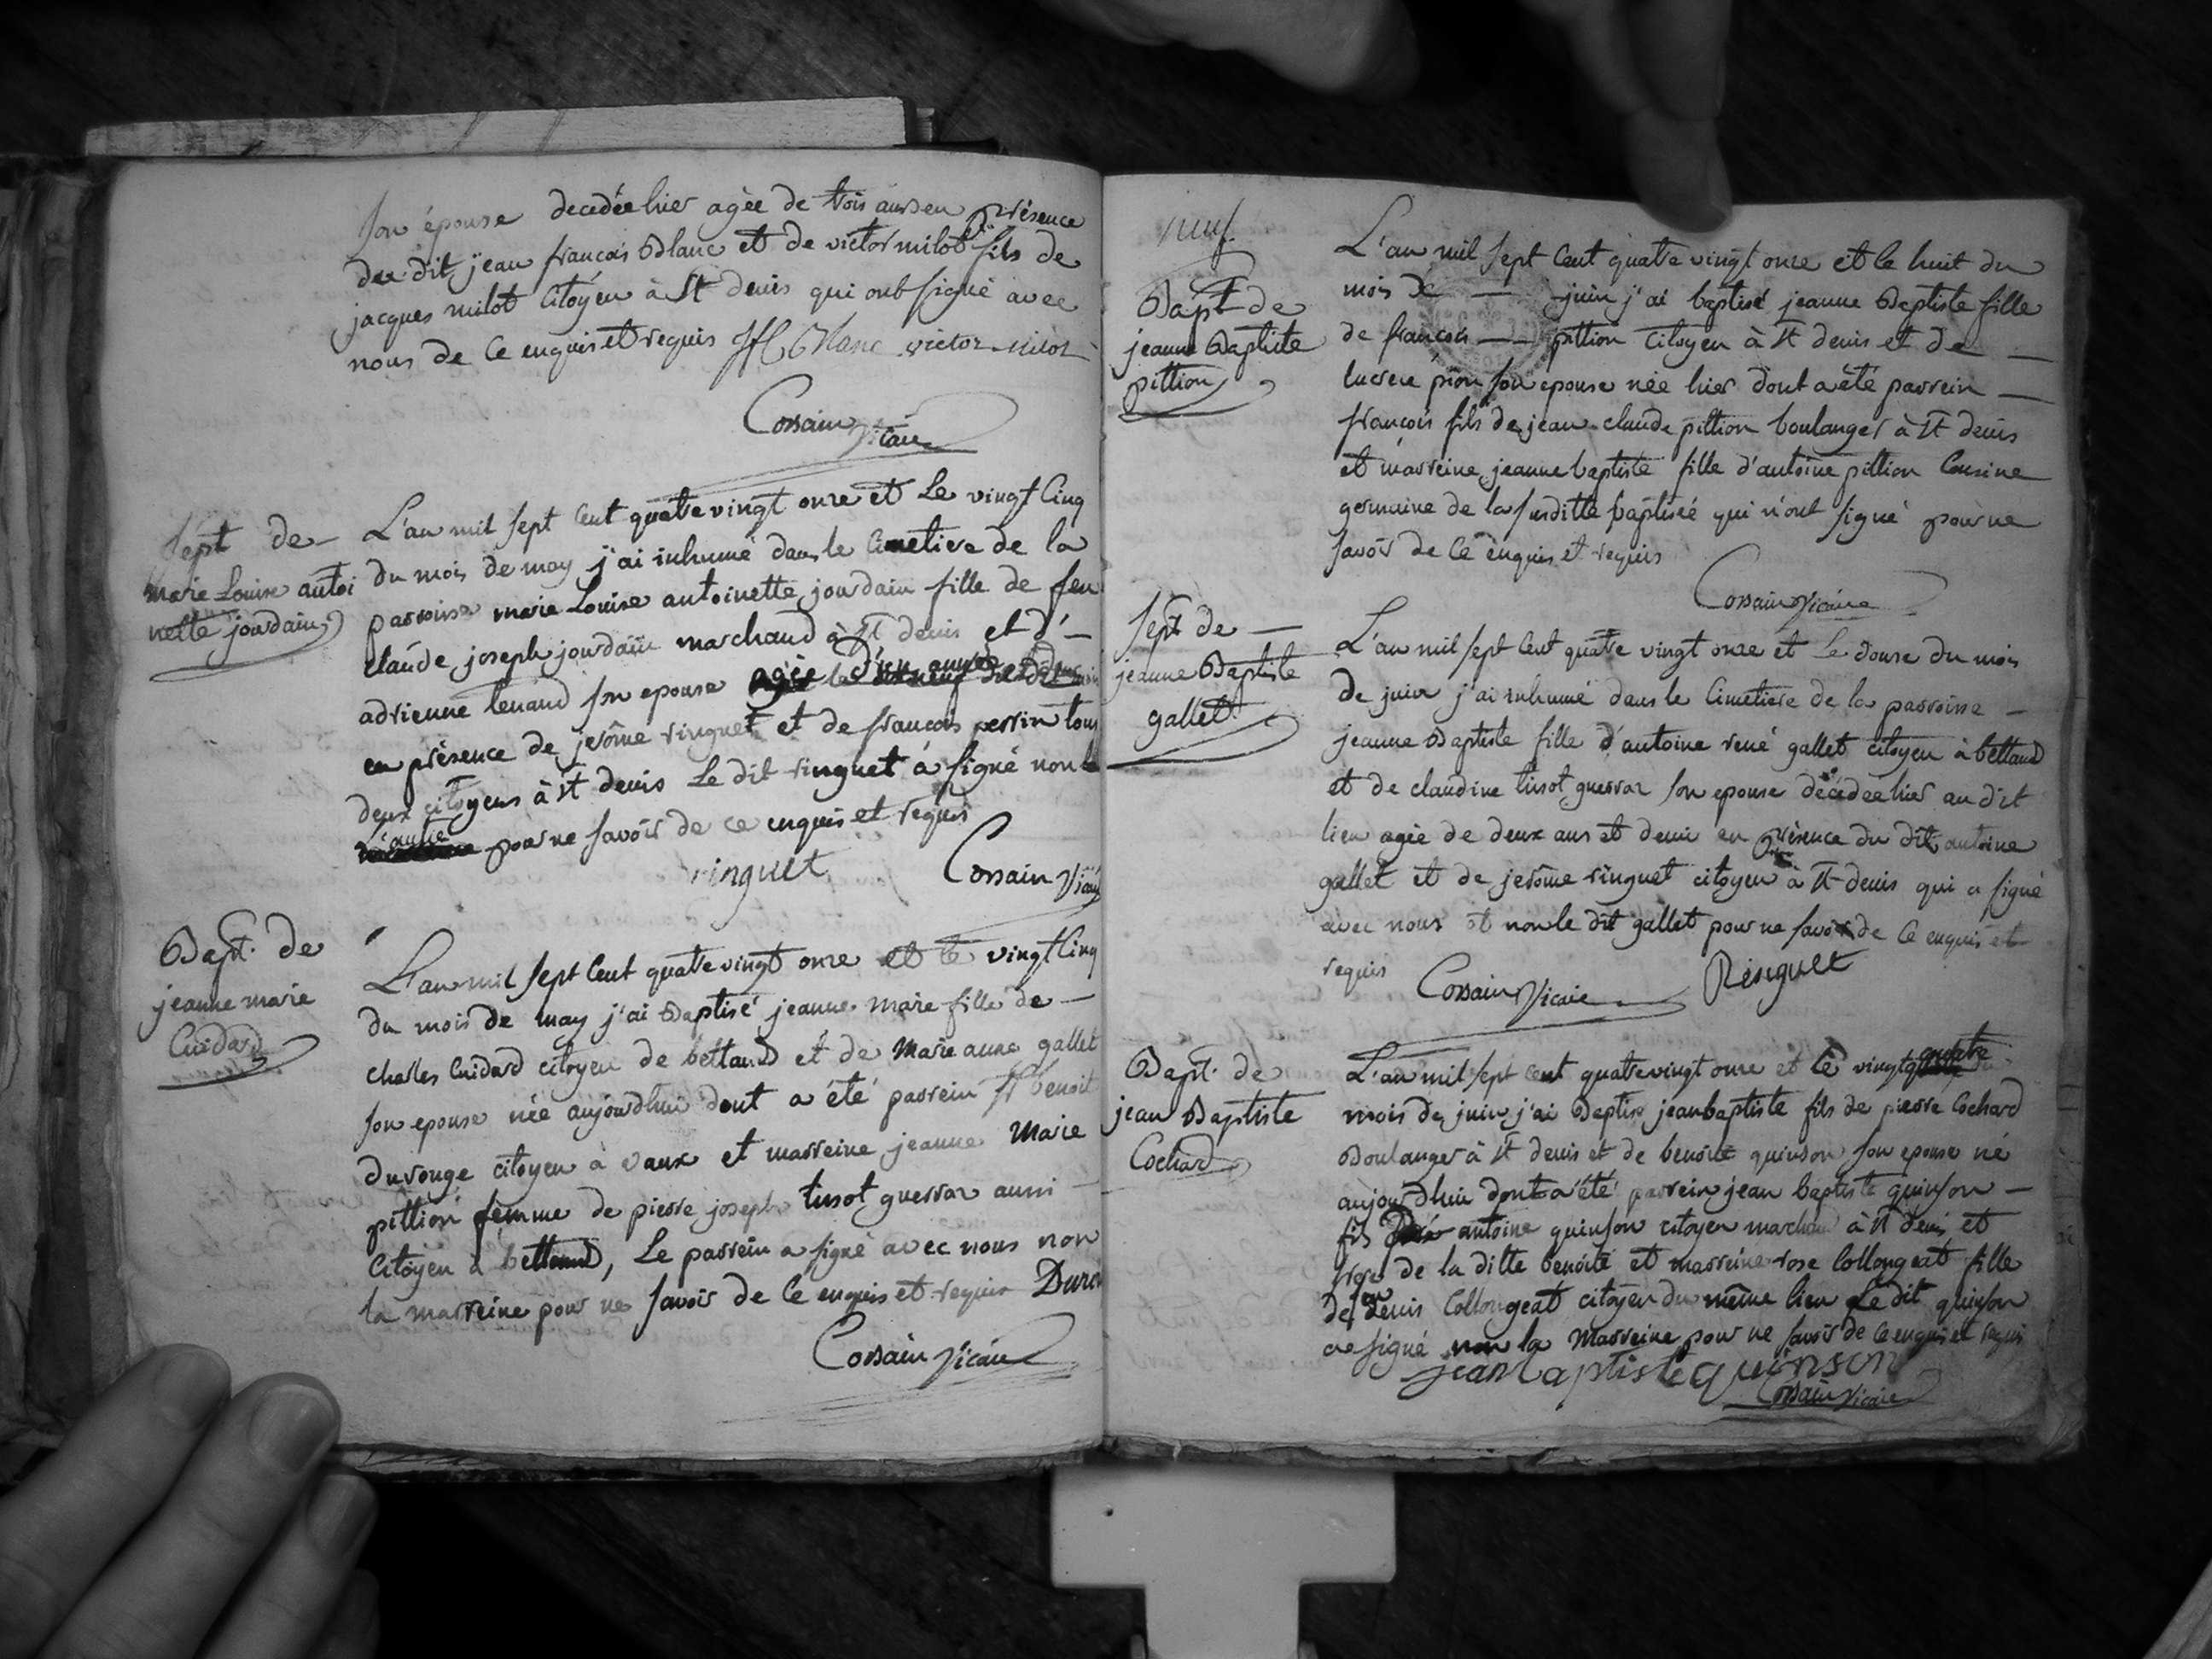 son épouse decedée hier agèe de trois ans en présence
du dit jean francois Blanc et de victor milot fils de
jacques milot Citoyen à St denis qui ont signé avec
nous de Ce enquis et requis Jf Blanc victor milot
Cossain Vicaire
Sept de
marie Louise antoi
nette jourdain
L'an mil sept Cent quatre vingt onze et Le vingt Cinq
du mois de may j'ai inhumé dans le Cimetiere de la
parroisse marie Louise antoinette jourdain fille de feu
claude joseph jourdain marchand à St denis et d'
adrienne tenand son epouse agèe
en présence de jerôme ringuet et de francois perrin tous
deux citoyens à St denis Le dit ringuet a signé non
l'autre pour ne savoir de ce enquis et requis
ringuet Cossain Vicaire
Bapt. de
jeanne marie
Cuidard
L'an mil sept Cent quatre vingt onze et le vingt Cinq
du mois de may j'ai Baptisé jeanne marie fille de
charles Cuidard citoyen de bettand et de Marie anne gallet
son epouse née aujourdhui dont a été parrein benoit
durouge citoyen à vaux et marreine jeanne Marie
pittion femme de pierre joseph tissot guerraz aussi
Citoyen à bettand, Le parrein a signé avec nous non
la marreine pour ne savoir de Ce enquis et requis
Cossain Vicaire
neuf.
Bapt de
jeanne Baptiste
pittion
L'an mil sept Cent quatre vingt onze et le huit du
mois de juin j'ai baptisé jeanne Baptiste fille
de françois pittion Citoyen à St denis et de
lucrece pion son epouse née hier dont a été parrein
françois fils de jean claude pittion boulanger à St denis
et marreine jeanne baptiste fille d'antoine pittion Cousine
germaine de la susditte baptisée qui n'ont signé pour ne
savoir de Ce enquis et requis
Cossain Vicaire
Sept de
jeanne Baptiste
gallet
L'an mil sept Cent quatre vingt onze et Le douze du mois
de juin j'ai inhumé dans le Cimetiere de la parroisse
jeanne Baptiste fille d'antoine rené gallet citoyen à bettand
et de claudine tissot guerraz son epouse décédée hier au dit
lieu agée de deux ans et demi en présence du dit antoine
gallet et de jerôme ringuet citoyen à St denis qui a signé
avec nous et non le dit gallet pour ne savoir de Ce enquis et
requis
Cossain Vicaire Ringuet
Bapt. de
jean Baptiste
Cochard
L'an mil sept cent quatre vingt onze et le vingt quatre du
mois de juin j'ai Baptisé jean baptiste fils de pierre Cochard
Boulanger à St denis et de benoite quinson son epouse né
aujourdhui dont a été parrein jean baptiste quinson
fils antoine quinson citoyen marchand à St denis et
frere de la ditte benoite et marreine rose Collongeat fille
de feu denis Collongeat citoyen du même lieu Le dit quinson
a signé non la Marreine pour ne savoir de ce enquis et requis
jean baptiste quinson
Cossain Vicaire